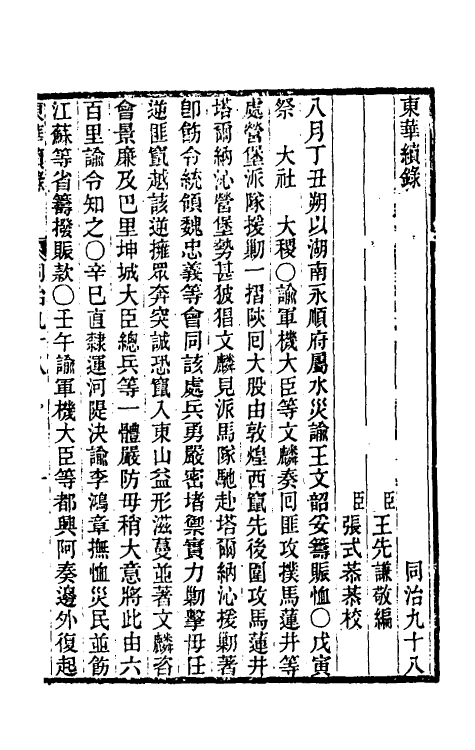 東華續錄　同治九十八
臣王先謙敬編
臣張式恭恭校
八月丁丑朔以湖南永順府屬水災諭王文韶妥籌賑恤○戊寅
祭　大社　大稷○諭軍機大臣等文麟奏囘匪攻撲馬蓮井等
處營堡派隊援勦一摺陝囘大股由敦煌西竄先後圍攻馬蓮井
塔爾納沁營堡勢甚狓猖文麟見派馬隊馳赴塔爾納沁接勦著
卽飭令統領魏忠義等會同該處兵勇嚴密堵禦實力勦擊毋任
逆匪竄越該逆擁眾奔突誠恐竄入東山益形滋蔓並著文麟咨
會景廉及巴里坤城大臣總兵等一體嚴防毋稍大意將此由六
百里諭令知之○辛巳直隸運河隄決諭李鴻章撫恤災民並飭
江蘇等省籌撥賑款○壬午諭軍機大臣等都興阿奏邊外復起